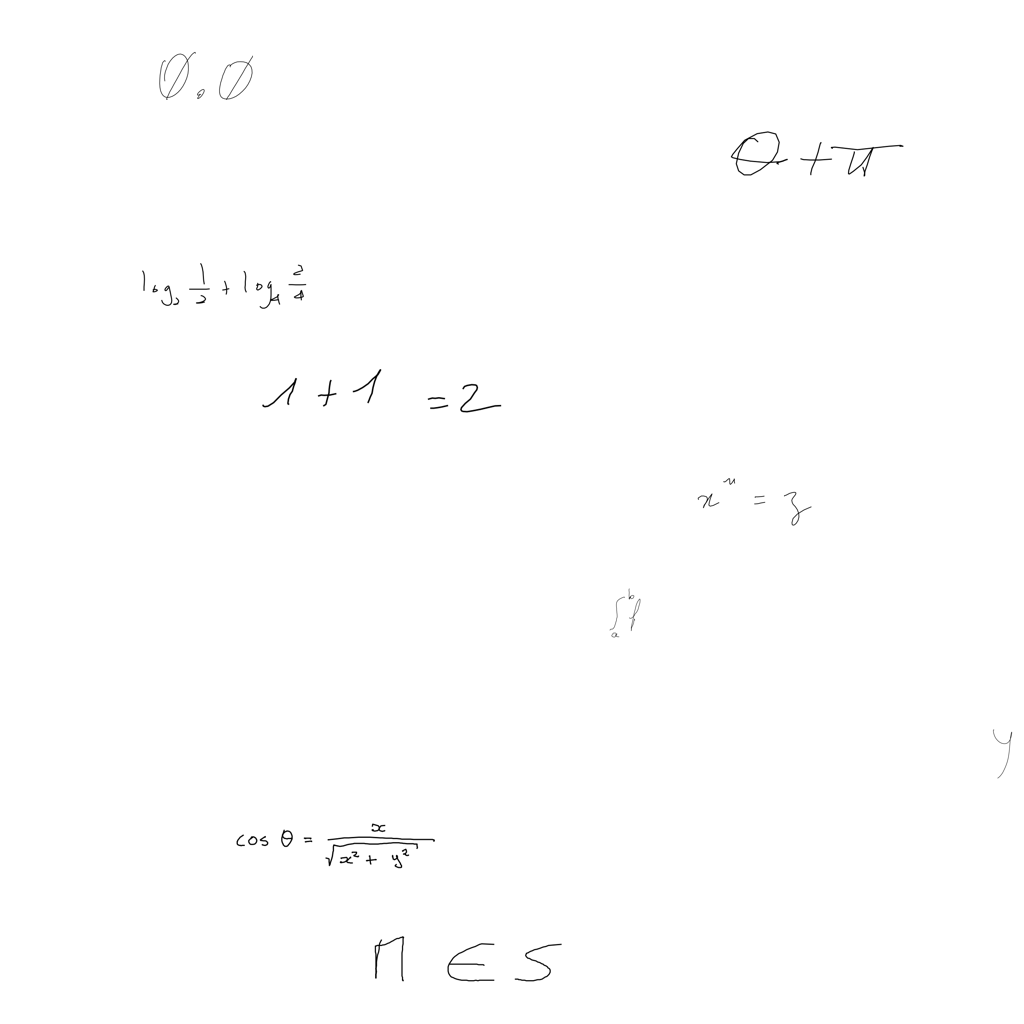 0.0
θ+π
log₂ 1/2 + log₄ 2/4
1+1 =2
xⁿ = z
∫ₐᵇ f
y
cos θ = x/√(x²+ y²)
n ∈ S